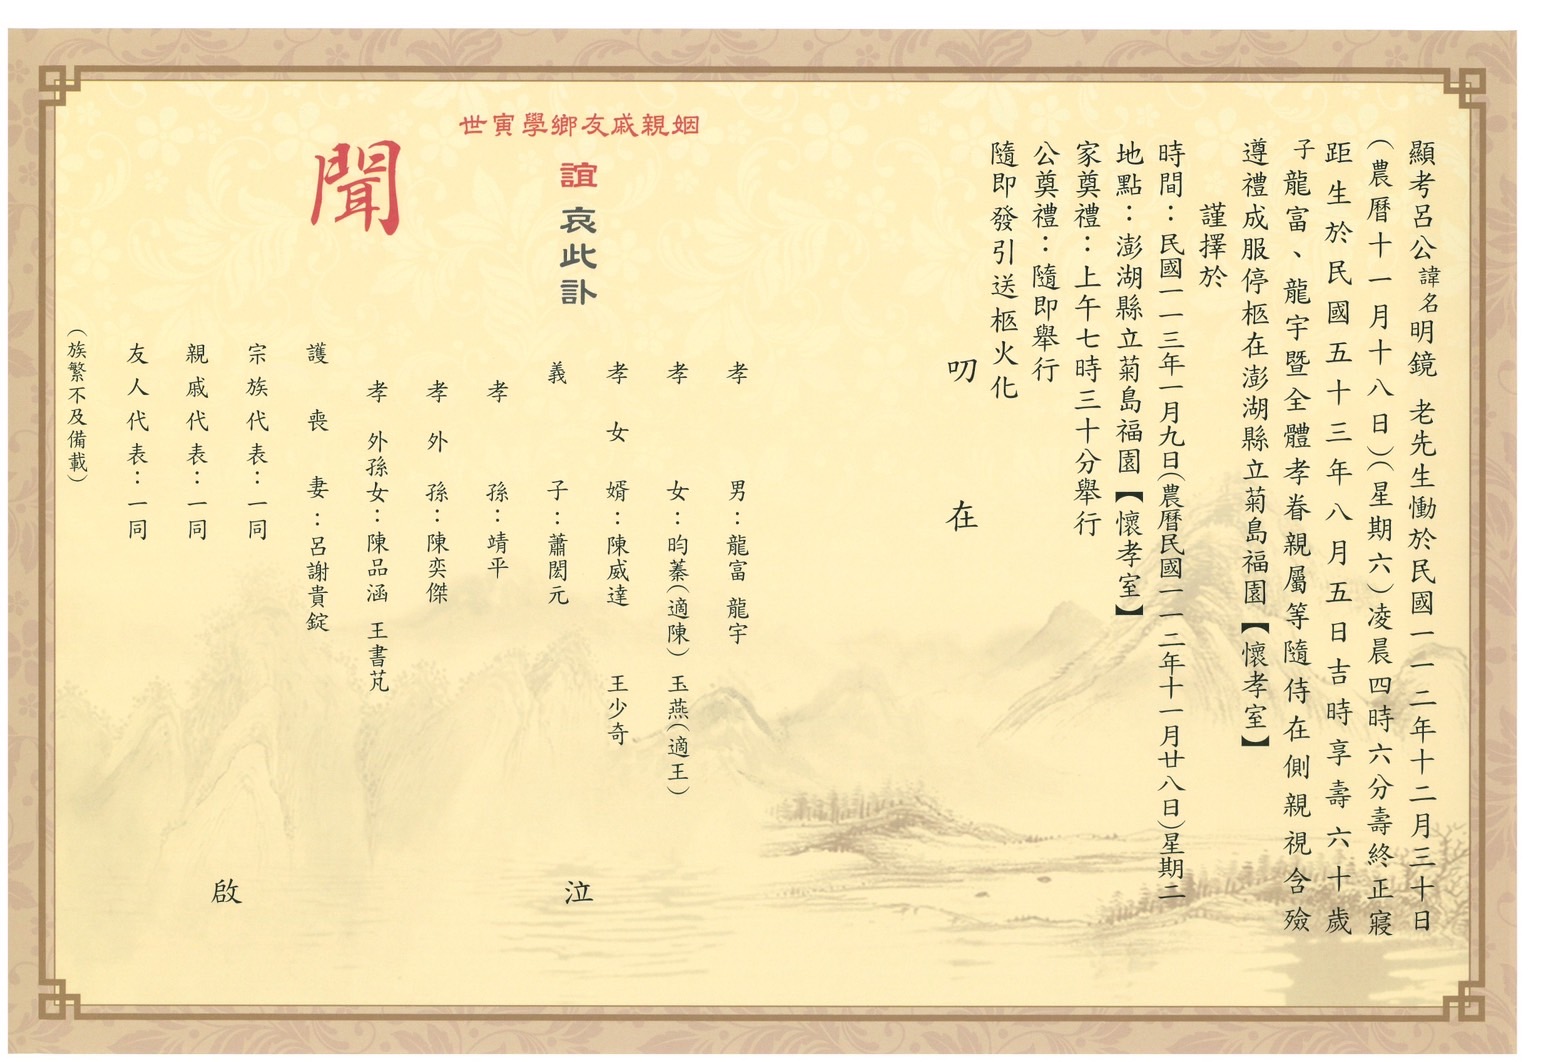 顯考呂公諱名明鏡 老先生慟於民國一一二年十二月三十日
(農曆十一月十八日)(星期六)凌晨四時六分壽終正寢
距生於民國五十三年八月五日吉時享壽六十歲
子龍富、龍宇暨全體孝眷親屬等隨侍在側親視含殮
遵禮成服停柩在澎湖縣立菊島福園【懷孝室】
謹擇於
時間：民國一一三年一月九日(農曆民國一一二年十一月廿八日)星期二
地點：澎湖縣立菊島福園【懷孝室】
家奠禮：上午七時三十分舉行
公奠禮：隨即舉行
隨即發引送柩火化
叨 在
姻親戚友鄉學寅世
誼 哀此訃
聞
孝 男：龍富 龍宇
孝 女：昀蓁(適陳) 玉燕(適王)
孝 女 婿：陳威達 王少奇
義 子：蕭閎元
孝 孫：靖平
孝 外 孫：陳奕傑
孝 外孫女：陳品涵 王書芃
護 喪 妻：呂謝貴錠
宗族代表：一同
親戚代表：一同
友人代表：一同
(族繁不及備載)
泣 啟